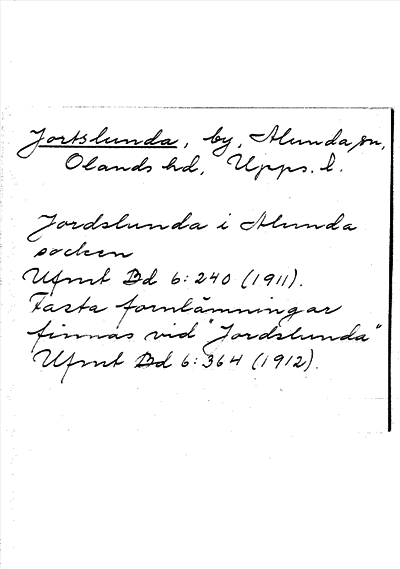 Jortslunda, by, Alunda sn,
Olands hd, Upps. l.
Jordslunda i Alunda
socken
Ufmt Bd 6:240 (1911).
Fasta fornlämningar
finnas vid "Jordslunda"
Ufmt Bd 6:364 (1912).